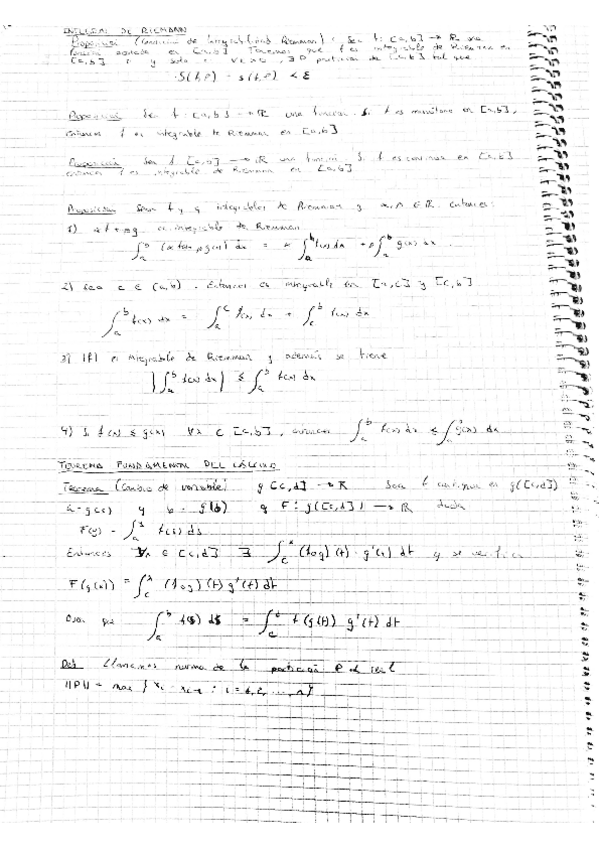 INTEGRAL DE RIEMANN
Proposición (Condición de Integrabilidad Riemann): Sea f: [a,b] → ℝ una
función acotada en [a,b]. Tenemos que f es integrable de Riemann en
[a,b] si y solo si ∀ε>0, ∃ P partición de [a,b] tal que
S(f,P) - s(f,P) < ε
Proposición Sea f: [a,b] → ℝ una función. Si f es monótona en [a,b],
entonces f es integrable de Riemann en [a,b]
Proposición Sea f [a,b] → ℝ una función Si f es continua en [a,b]
entonces f es integrable de Riemann en [a,b]
Proposición Sean f y g integrables de Riemann y α, β ∈ ℝ entonces:
1) αf + βg es integrable de Riemann
∫_a^b (αf(x) + βg(x)) dx = α ∫_a^b f(x) dx + β ∫_a^b g(x) dx
2) Sea c ∈ (a,b). Entonces es integrable en [a,c] y [c,b]
∫_a^b f(x) dx = ∫_a^c f(x) dx + ∫_c^b f(x) dx
3) |f| es integrable de Riemann y además se tiene
|∫_a^b f(x) dx| ≤ ∫_a^b f(x) dx
4) Si f(x) ≤ g(x) ∀x ∈ [a,b], entonces ∫_a^b f(x) dx ≤ ∫_a^b g(x) dx
TEOREMA FUNDAMENTAL DEL CÁLCULO
Teorema (Cambio de variable) g [c,d] → ℝ Sea f continua en g([c,d])
a = g(c) y b = g(d) y F: g([c,d]) → ℝ dada
F(y) = ∫_a^y f(s) ds
Entonces ∀x ∈ [c,d] ∃ ∫_c^x (f∘g)(t) · g'(t) dt y se verifica
F(g(x)) = ∫_c^x (f∘g)(t) g'(t) dt
∫_a^b f(s) ds = ∫_c^d f(g(t)) g'(t) dt
Def Llamamos norma de la partición P al real
||P|| = max { x_i - x_{i-1} : i = 1,2,...,n }